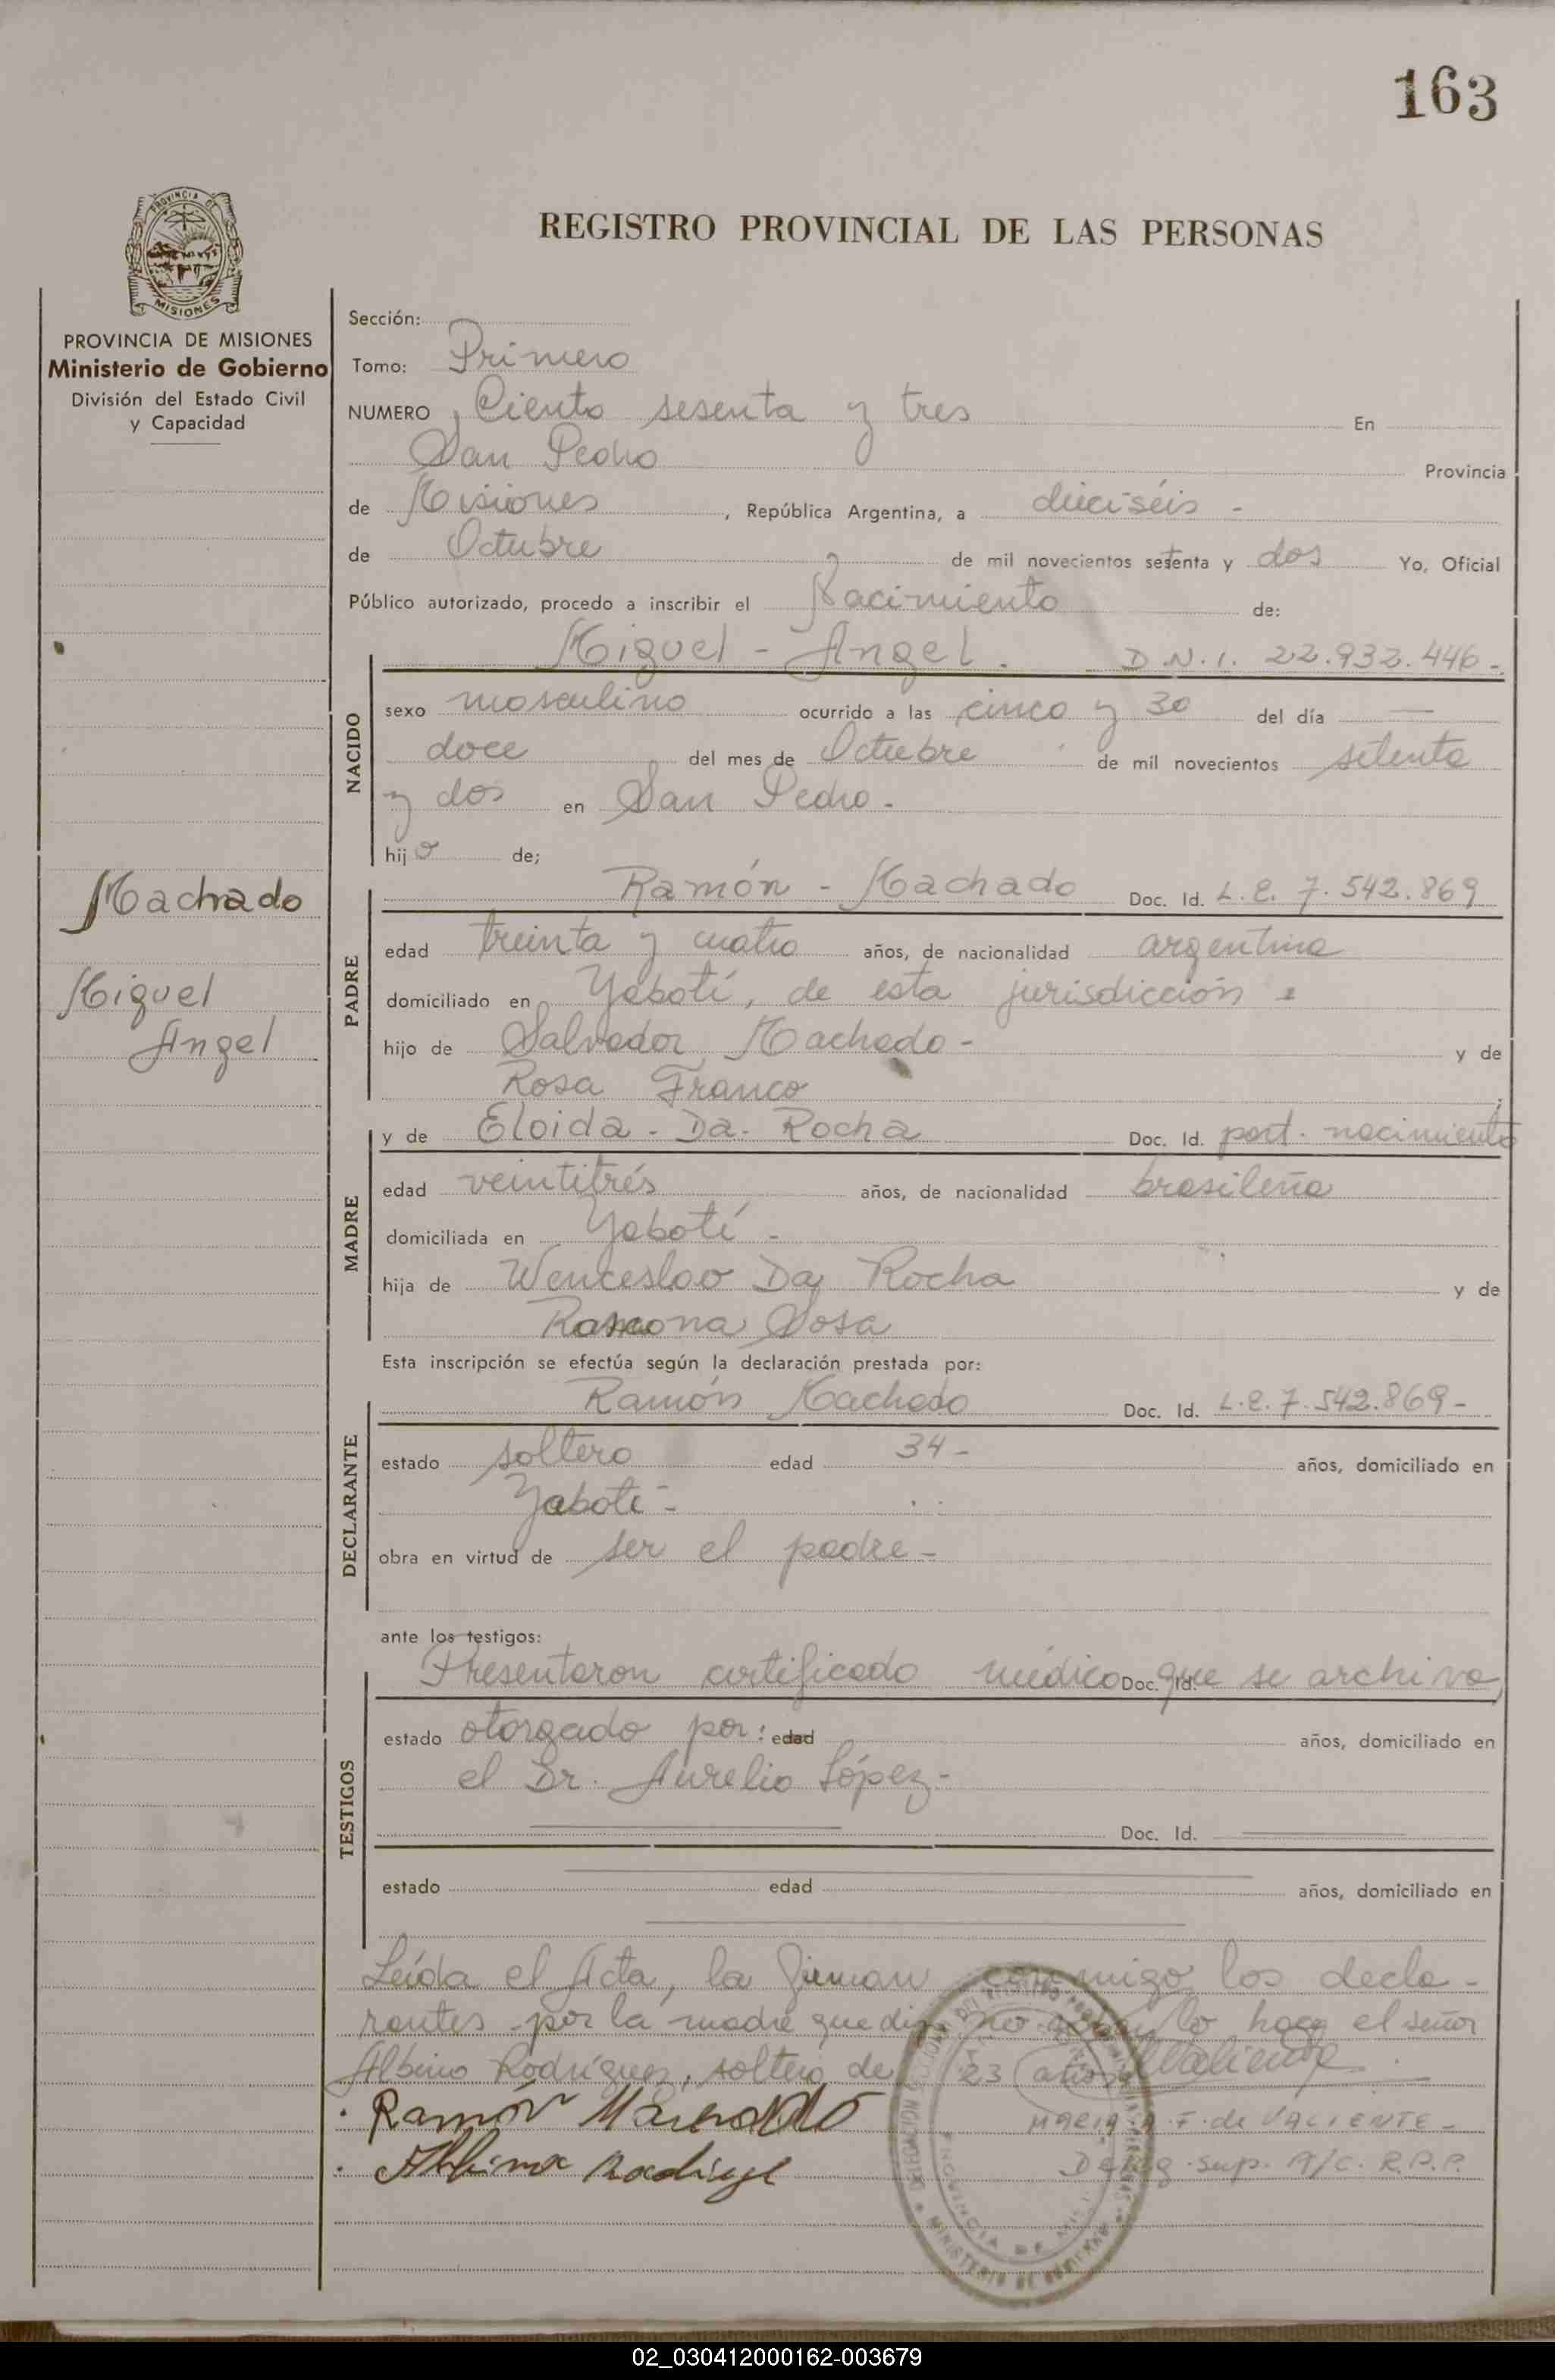 163
PROVINCIA DE MISIONES
REGISTRO PROVINCIAL DE LAS PERSONAS
PROVINCIA DE MISIONES
Ministerio de Gobierno
División del Estado Civil
y Capacidad
Sección:
Tomo: Primero
NUMERO Ciento sesenta y tres En
San Pedro Provincia
de Misiones, República Argentina, a dieciséis -
de Octubre de mil novecientos setenta y dos Yo, Oficial
Público autorizado, procedo a inscribir el Nacimiento de:
Miguel - Angel. D.N.I. 22.932.446-
NACIDO
sexo masculino ocurrido a las cinco y 30 del día —
doce del mes de Octubre de mil novecientos setenta
y dos en San Pedro.
hijo de;
Machado
Miguel
Angel
PADRE
Ramón - Machado Doc. Id. L.E. 7.542.869
edad treinta y cuatro años, de nacionalidad argentina
domiciliado en Yabotí, de esta jurisdicción
hijo de Salvador Machado - y de
Rosa Franco
MADRE
y de Eloida - Da - Rocha Doc. Id. part. nacimiento
edad veintitrés años, de nacionalidad brasileña
domiciliada en Yabotí -
hija de Wenceslao Da Rocha y de
Ramona Sosa
Esta inscripción se efectúa según la declaración prestada por:
DECLARANTE
Ramón Machado Doc. Id. L.E. 7.542.869-
estado soltero edad 34- años, domiciliado en
Yabotí -
obra en virtud de ser el padre-
ante los testigos:
TESTIGOS
Presentaron certificado médico Doc. Id. que se archiva,
estado otorgado por: edad años, domiciliado en
el Dr. Aurelio López-
Doc. Id.
estado edad años, domiciliado en
Leída el Acta, la firman conmigo los decla-
rantes por la madre que dijo no lo hace el señor
Albino Rodríguez, soltero de 23 años
Ramón Machado
MARIA A. F. de VALIENTE-
Deleg. sup. A/C. R.P.P.
MINISTERIO DE GOBIERNO
PROVINCIA DE
02_030412000162-003679